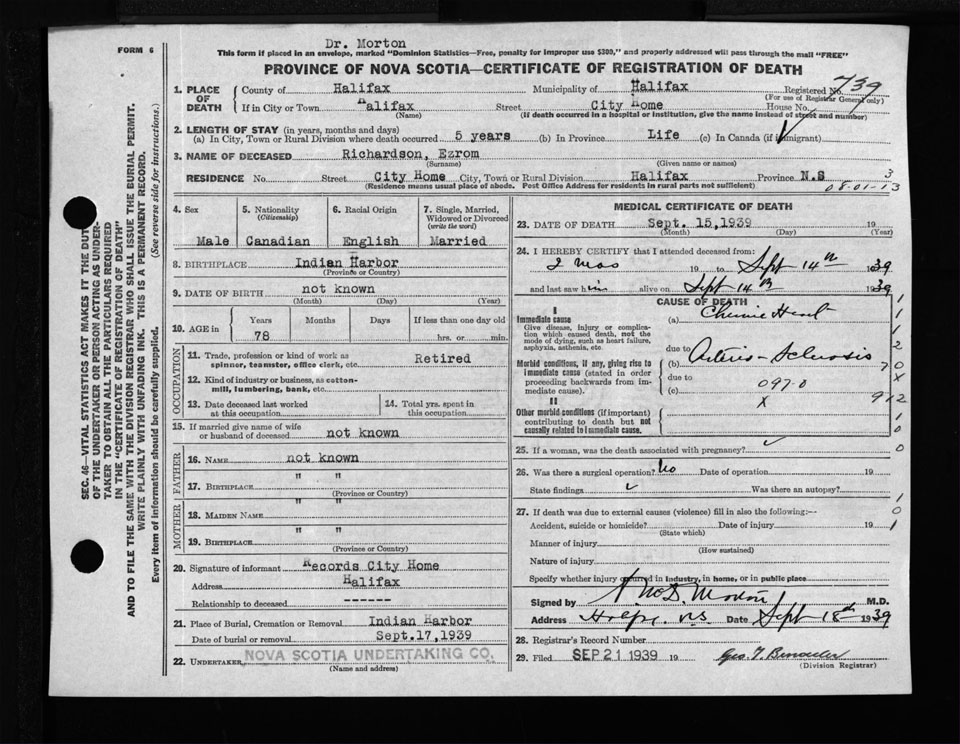 Dr. Morton
FORM 6
This form if placed in an envelope, marked "Dominion Statistics—Free, penalty for improper use $300," and properly addressed will pass through the mail "FREE"
PROVINCE OF NOVA SCOTIA—CERTIFICATE OF REGISTRATION OF DEATH
1. PLACE OF DEATH
County of Halifax Municipality of Halifax Registered No. 739
(For use of Registrar General only)
If in City or Town Halifax Street City Home House No.
(Name) (If death occurred in a hospital or institution, give the name instead of street and number)
2. LENGTH OF STAY (in years, months and days)
(a) In City, Town or Rural Division where death occurred 5 years (b) In Province Life (c) In Canada (if immigrant)
3. NAME OF DECEASED Richardson, Ezrom
(Surname) (Given name or names)
RESIDENCE No. Street City Home City, Town or Rural Division Halifax Province N.S 3
(Residence means usual place of abode. Post Office Address for residents in rural parts not sufficient) 08-01-13
4. Sex
Male
5. Nationality
(Citizenship)
Canadian
6. Racial Origin
English
7. Single, Married, Widowed or Divorced
(write the word)
Married
8. BIRTHPLACE Indian Harbor
(Province or Country)
9. DATE OF BIRTH not known
(Month) (Day) (Year)
10. AGE in
Years Months Days If less than one day old
78 hrs. or min.
OCCUPATION
11. Trade, profession or kind of work as spinner, teamster, office clerk, etc. Retired
12. Kind of industry or business, as cotton-mill, lumbering, bank, etc.
13. Date deceased last worked at this occupation
14. Total yrs. spent in this occupation
15. If married give name of wife or husband of deceased not known
FATHER
16. NAME not known
17. BIRTHPLACE " "
(Province or Country)
MOTHER
18. MAIDEN NAME " "
19. BIRTHPLACE " "
(Province or Country)
20. Signature of informant Records City Home
Address Halifax
Relationship to deceased ------
21. Place of Burial, Cremation or Removal Indian Harbor
Date of burial or removal Sept.17,1939
22. UNDERTAKER NOVA SCOTIA UNDERTAKING CO.
(Name and address)
MEDICAL CERTIFICATE OF DEATH
23. DATE OF DEATH Sept. 15,1939 19
(Month) (Day) (Year)
24. I HEREBY CERTIFY that I attended deceased from:
2 mos 19 to Sept 14th 1939
and last saw him alive on Sept 14th 1939
CAUSE OF DEATH
I
Immediate cause
Give disease, injury or complication which caused death, not the mode of dying, such as heart failure, asphyxia, asthenia, etc.
(a)
due to
Morbid conditions, if any, giving rise to immediate cause (stated in order proceeding backwards from immediate cause).
(b) Arterio-Sclerosis
due to
(c) 097-0
II
Other morbid conditions (important) contributing to death but not causally related to immediate cause.
X
1
1
1
2
7 0
X
9 12
1
0
0
25. If a woman, was the death associated with pregnancy?
26. Was there a surgical operation? No Date of operation 19
State findings Was there an autopsy?
1
0
1
27. If death was due to external causes (violence) fill in also the following:—
Accident, suicide or homicide? Date of injury 19
(State which)
Manner of injury
(How sustained)
Nature of injury
Specify whether injury occurred in industry, in home, or in public place
Signed by Morton M.D.
Address N.S Date Sept 18th 1939
28. Registrar's Record Number
29. Filed SEP 21 1939 19
(Division Registrar)
SEC. 46—VITAL STATISTICS ACT MAKES IT THE DUTY
OF THE UNDERTAKER OR PERSON ACTING AS UNDER-
TAKER TO OBTAIN ALL THE PARTICULARS REQUIRED
IN THE "CERTIFICATE OF REGISTRATION OF DEATH"
AND TO FILE THE SAME WITH THE DIVISION REGISTRAR WHO SHALL ISSUE THE BURIAL PERMIT.
WRITE PLAINLY WITH UNFADING INK. THIS IS A PERMANENT RECORD.
Every item of information should be carefully supplied. (See reverse side for instructions.)